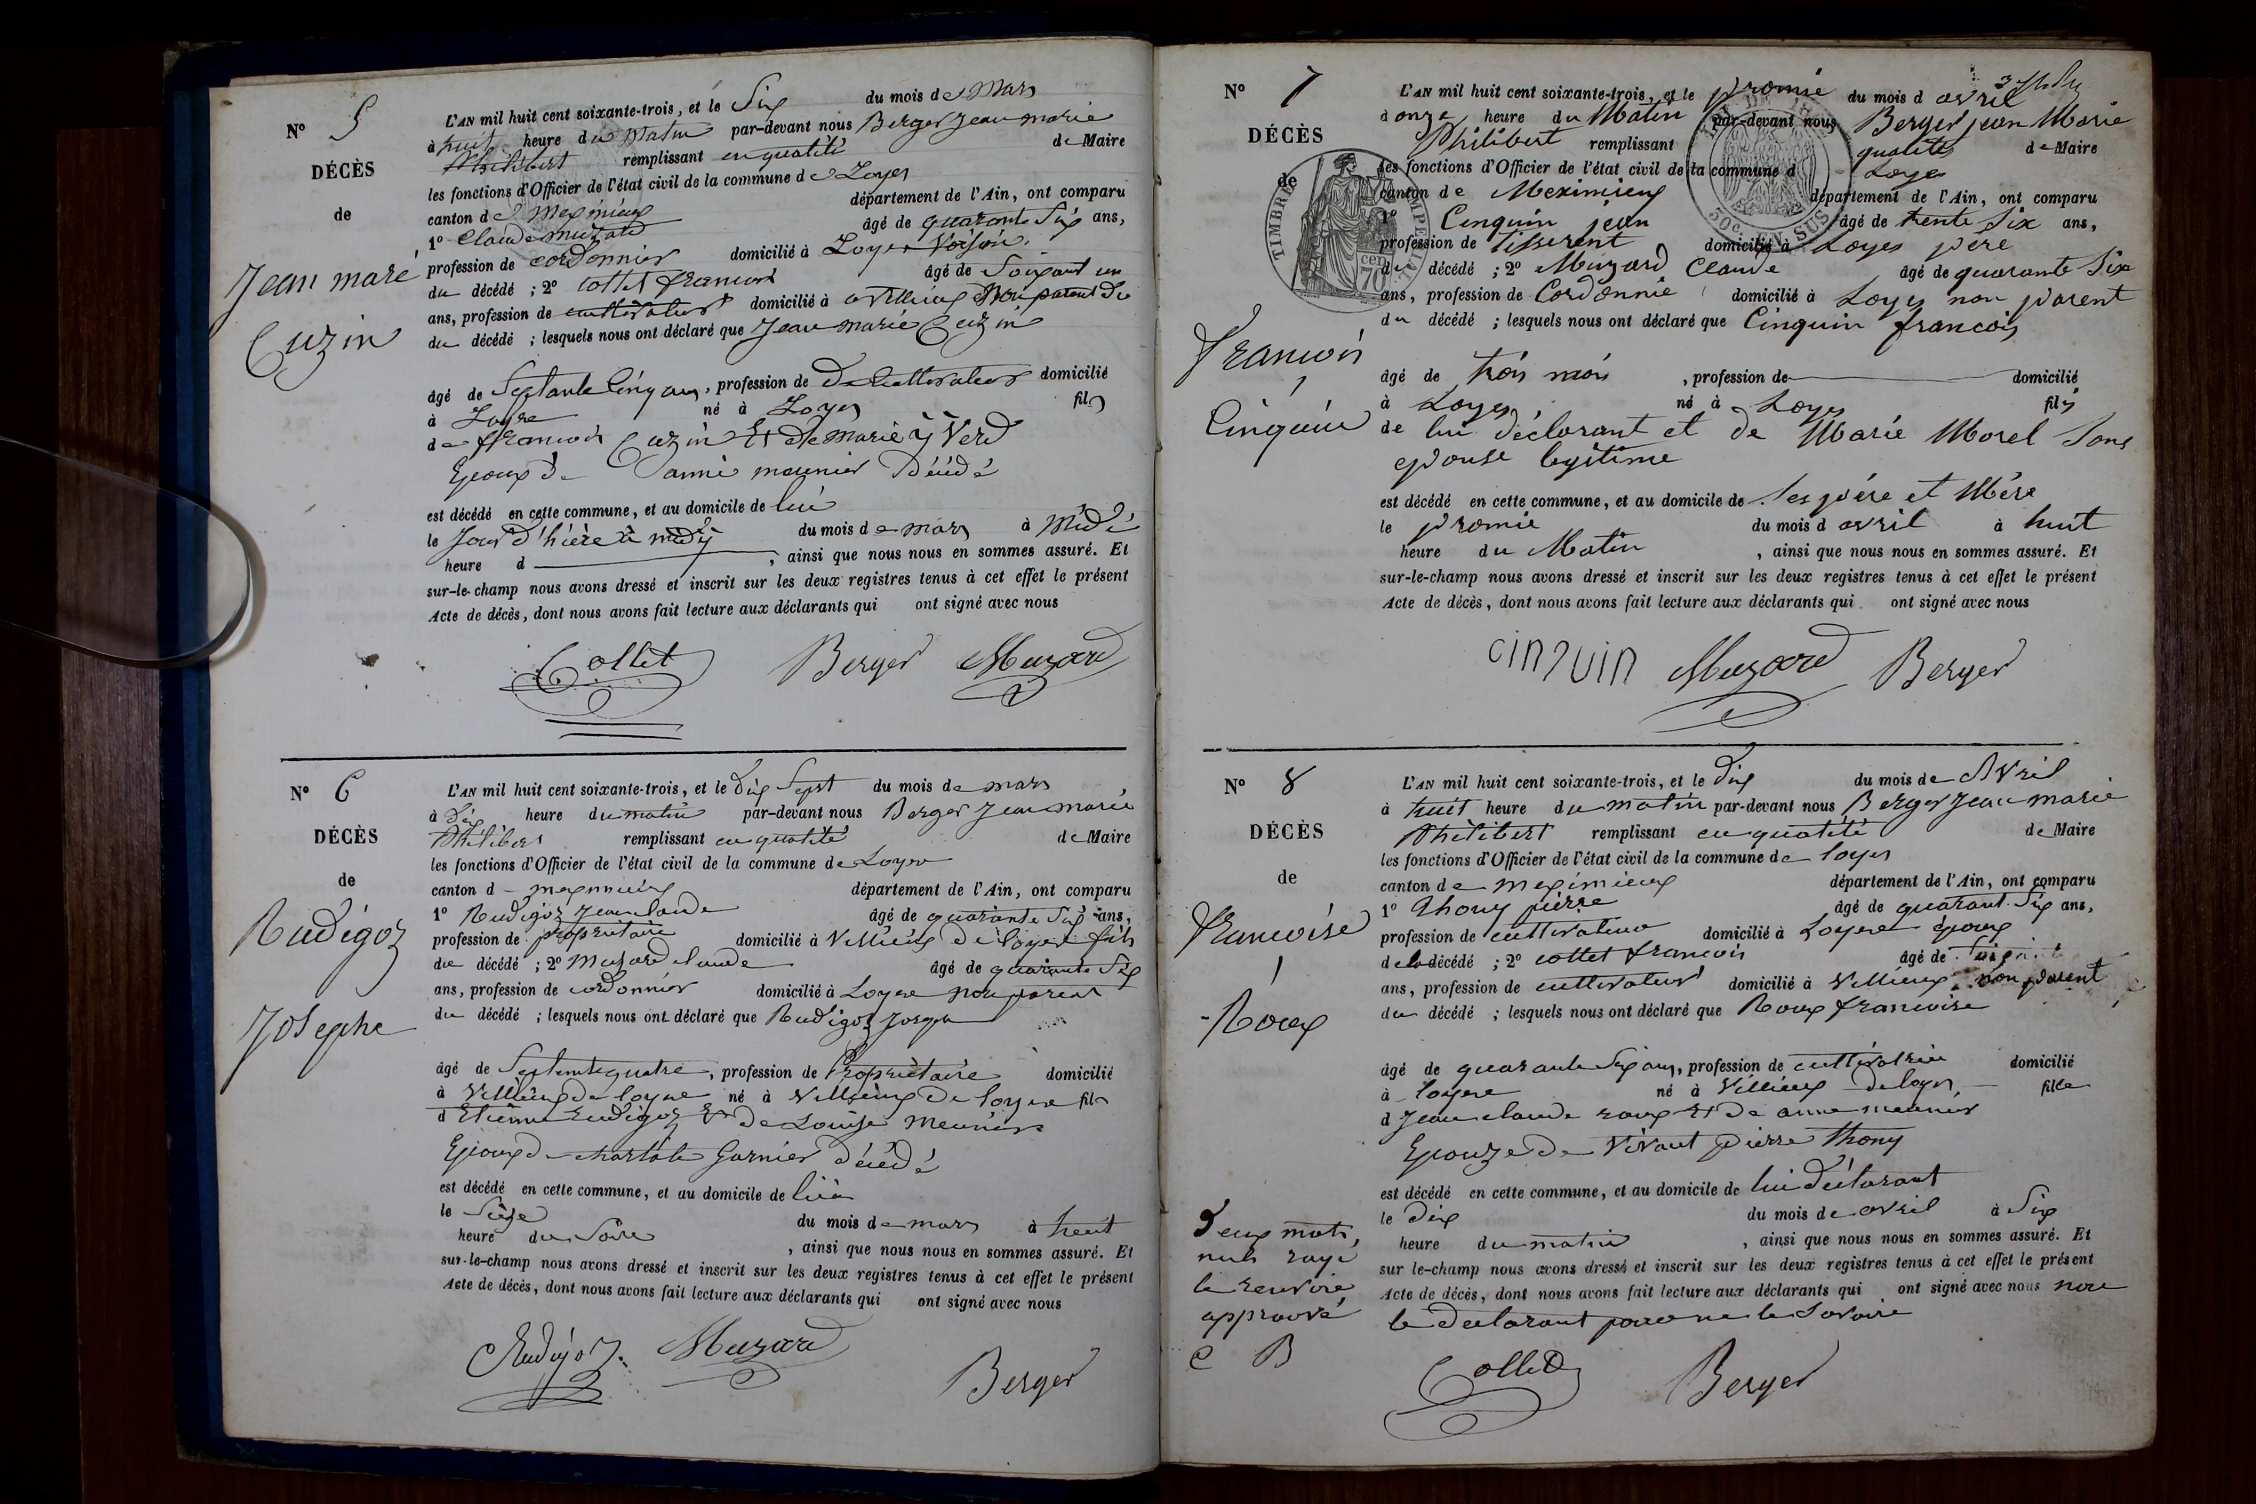 N° 5
DÉCÈS
de
Jean maré
Cuzin
L'AN mil huit cent soixante-trois, et le Six du mois de Mars
à huit heure du Matin par-devant nous Berger Jean marie
Philibert remplissant en qualité de Maire
les fonctions d'Officier de l'état civil de la commune de Loyes
canton de Meximieux département de l'Ain, ont comparu
1° Claude Muzard âgé de quarante Six ans,
profession de cordonnier domicilié à Loyes Voisin
du décédé ; 2° Collet francois âgé de Soixant un
ans, profession de cultivateur domicilié à Villieux Non parent du
du décédé ; lesquels nous ont déclaré que Jean marie Cuzin
âgé de Septante Cinq ans, profession de De Cultivateur domicilié
à Loyse né à Loyes fils
de francois Cuzin Et De Marie Verd
Epoux de anne meunier Décédé
est décédé en cette commune, et au domicile de lui
le Jour d'hière à midy du mois de mars à Midi
heure d , ainsi que nous nous en sommes assuré. Et
sur-le-champ nous avons dressé et inscrit sur les deux registres tenus à cet effet le présent
Acte de décès, dont nous avons fait lecture aux déclarants qui ont signé avec nous
Collet Berger Muzard
N° 6
DÉCÈS
de
Rudigoz
Josephe
L'AN mil huit cent soixante-trois, et le Dix Sept du mois de mars
à Dix heure du matin par-devant nous Berger Jean marie
Philibert remplissant en qualité de Maire
les fonctions d'Officier de l'état civil de la commune de Loyes
canton d meximieux département de l'Ain, ont comparu
1° Rudigoz Jean Claude âgé de quarante Six ans,
profession de propriétaire domicilié à Villieux De loyes fils
du décédé ; 2° Muzard claude âgé de quarante Six
ans, profession de cordonnier domicilié à Loyse non parent
du décédé ; lesquels nous ont déclaré que Rudigoz Joseph
âgé de Septente quatre, profession de Propriétaire domicilié
à Villieux de loyse né à Villieux De loyse fils
d Etienne Rudigoz Et de Louise Meunier
Epoux de Garnier décédé
est décédé en cette commune, et au domicile de lui
le Seize du mois de mars à heut
heure du Soire , ainsi que nous nous en sommes assuré. Et
sur-le-champ nous avons dressé et inscrit sur les deux registres tenus à cet effet le présent
Acte de décès, dont nous avons fait lecture aux déclarants qui ont signé avec nous
Rudigoz Muzard
Berger
N° 7
DÉCÈS
de
TIMBRE IMPERIAL
70 cen
30c. EN SUS
Francois
Cinquin
L'AN mil huit cent soixante-trois, et le promié du mois d avril
à onze heure du Matin par-devant nous Berger jean Marie
Philibert remplissant qualité de Maire
les fonctions d'Officier de l'état civil de la commune d Loyes
canton de Meximieux département de l'Ain, ont comparu
1° Cinquin jean âgé de trente Six ans,
profession de Tisserent domicilié à Loyes père
du décédé ; 2° Muzard Claude âgé de quarante Six
ans, profession de Cordonnié domicilié à Loyes non parent
du décédé ; lesquels nous ont déclaré que Cinquin francois
âgé de trois mois , profession de domicilié
à Loyes né à Loyes fils
de lui déclarant et de Marie Morel Sons
epouse legitime
est décédé en cette commune, et au domicile de Ses père et Mére
le promie du mois d avril à huit
heure du Matin , ainsi que nous nous en sommes assuré. Et
sur-le-champ nous avons dressé et inscrit sur les deux registres tenus à cet effet le présent
Acte de décès, dont nous avons fait lecture aux déclarants qui ont signé avec nous
cinquin Muzard Berger
N° 8
DÉCÈS
de
Francoise
Roux
L'AN mil huit cent soixante-trois, et le Dix du mois de Avril
à huit heure du matin par-devant nous Berger Jean marie
Philibert remplissant en qualité de Maire
les fonctions d'Officier de l'état civil de la commune de loyes
canton de meximieux département de l'Ain, ont comparu
1° Thony pierre âgé de quarant Six ans,
profession de cultivateur domicilié à Loyse Epoux
de la décédé ; 2° collet francois âgé de
ans, profession de cultivateur domicilié à Villieux non parent
du décédé ; lesquels nous ont déclaré que Roux francoise
âgé de quarante Six ans, profession de cultivatrice domicilié
à loyse né à Villieux de loyes fille
d Jean claude roux Et de anne meunier
Epouze De Vivant pierre thony
est décédé en cette commune, et au domicile de lui déclarant
le Dix du mois de avril à Six
heure du matin , ainsi que nous nous en sommes assuré. Et
sur le-champ nous avons dressé et inscrit sur les deux registres tenus à cet effet le présent
Acte de décès, dont nous avons fait lecture aux déclarants qui ont signé avec nous non
le declarant pour ne le Savoire
Deux mots
nuls rayé
le renvoie
approuvé
C B
Collet Berger